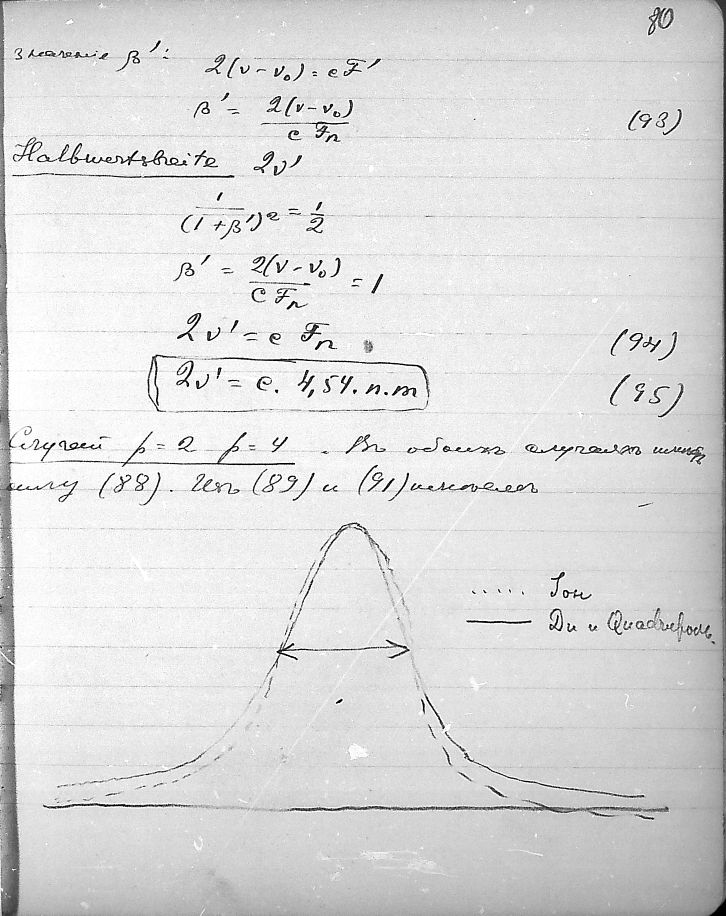 80
значенiе β':
2(ν-ν₀) = cF'
β' = 2(ν-ν₀) / c Fₙ (93)
Halbwertsbreite 2ν'
1 / (1+β')² = 1/2
β' = 2(ν-ν₀) / c Fₙ = 1
2ν' = c Fₙ (94)
2ν' = c. 4,54. n. m (95)
Случай p=2 p=4. Въ обоихъ случаяхъ
силу (88). Изъ (89) и (91)
Iон
Ди и Quadruполь.